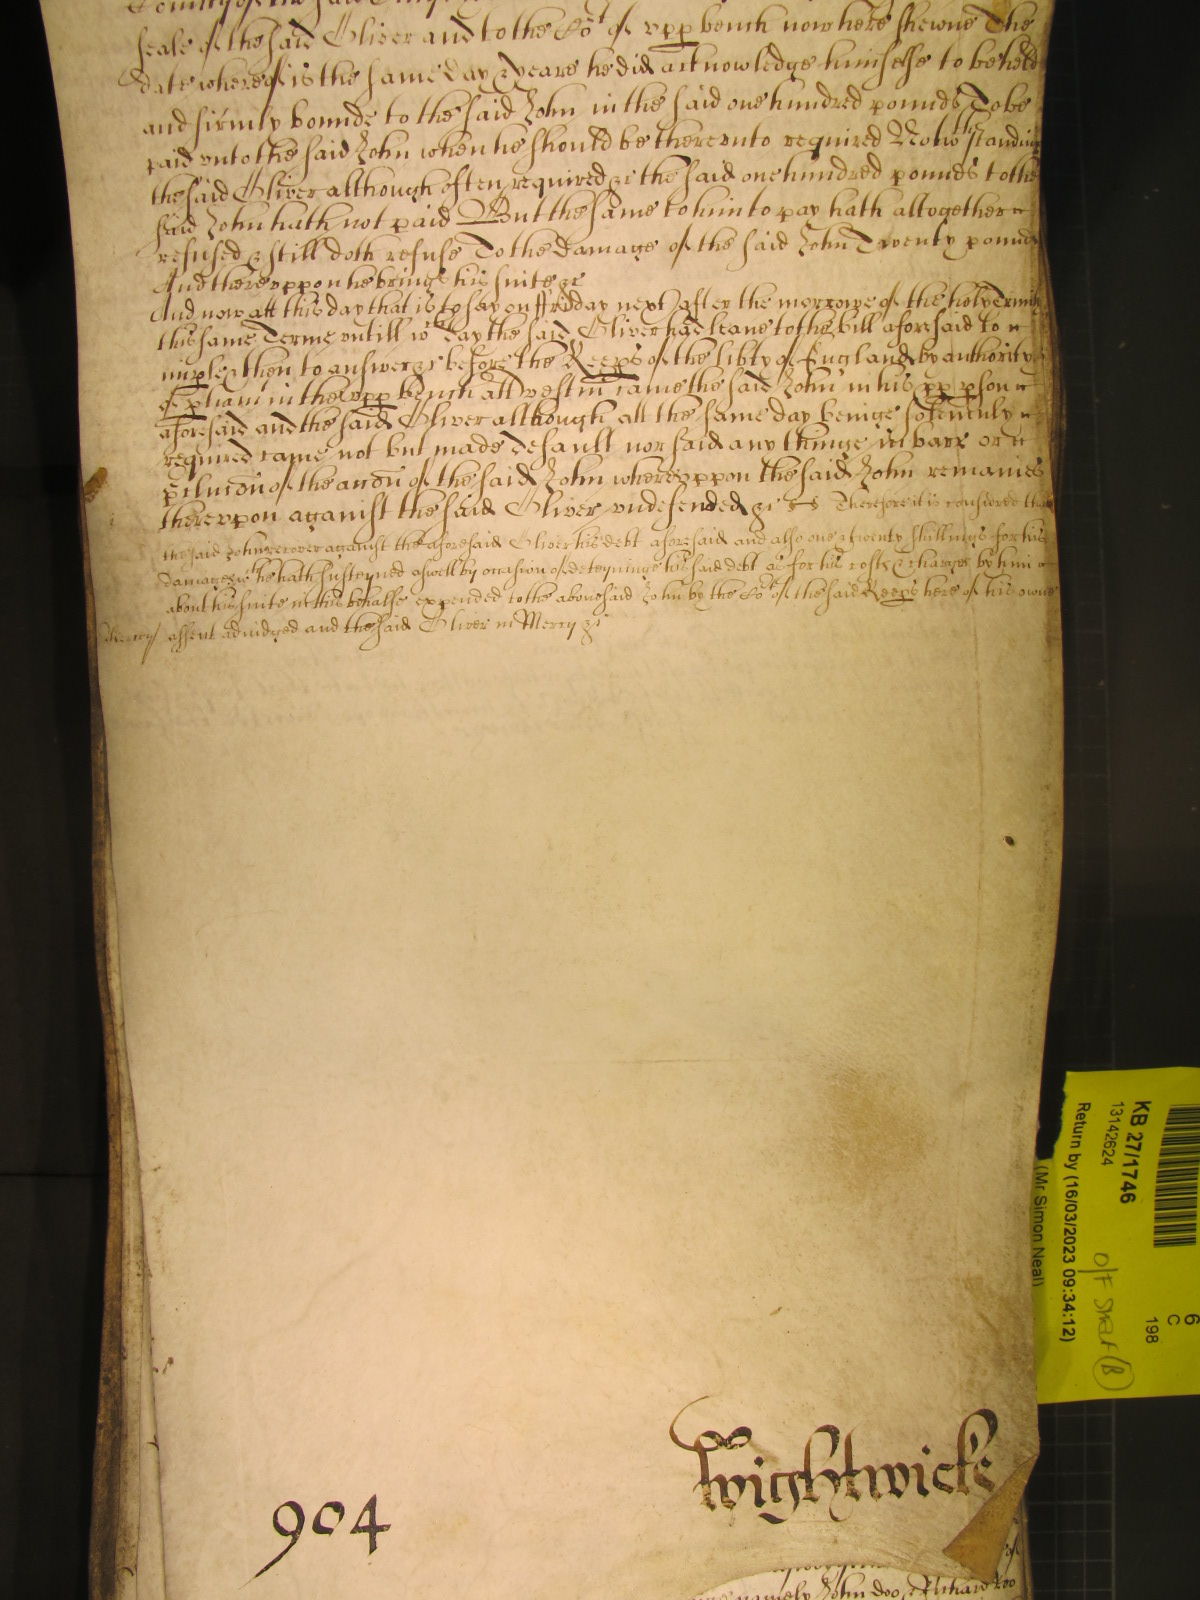 seale of the said Oliver and to the Cot of upp bench now here shewne The
date whereof is the same day & yeare he did acknowledge himselfe to be held
and firmly bounde to the said John in the said one hundred pounds To be
paid unto the said John when he should be thereunto required Notwthstanding
the said Oliver although often required &c the said one hundred pounds to the
said John hath not paid But the same to him to pay hath altogether
refused & still doth refuse To the damage of the said John Twenty pounds
And thereuppon he brings his suite &c
And now att this day that is to say on ffriday next after the morrowe of the holy Trinity
this same Terme untill wch day the said Oliver had leave to the bill aforesaid to
imple & then to answer &c before the Keeps of the libty of England by authority
of Pliamt in the upp bench att Westm came the said John in his pp pson
aforesaid and the said Oliver although att the same day beinge solemnly
required came not but made default nor said any thinge in barr or
pclusion of the accon of the said John whereuppon the said John remaines
thereupon against the said Oliver undefended &c Therefore it is considered that
the said John recover against the aforesaid Oliver his debt aforesaid and also one & twenty shillings for his
damages wch he hath susteyned aswell by occasion of deteyninge his said debt as for his costs & charges by him
about his suite in this behalfe expended to the abovesaid John by the Cot of the said Keeps here of his owne
Mercy assent adiudged and the said Oliver in Mercy &c
Wightwicke
904
namely John Doo & Richard Roo
KB 27/1746
13142624
Return by (16/03/2023 09:34:12)
(Mr Simon Neal)
6
C
198
O/F Shelf (B)